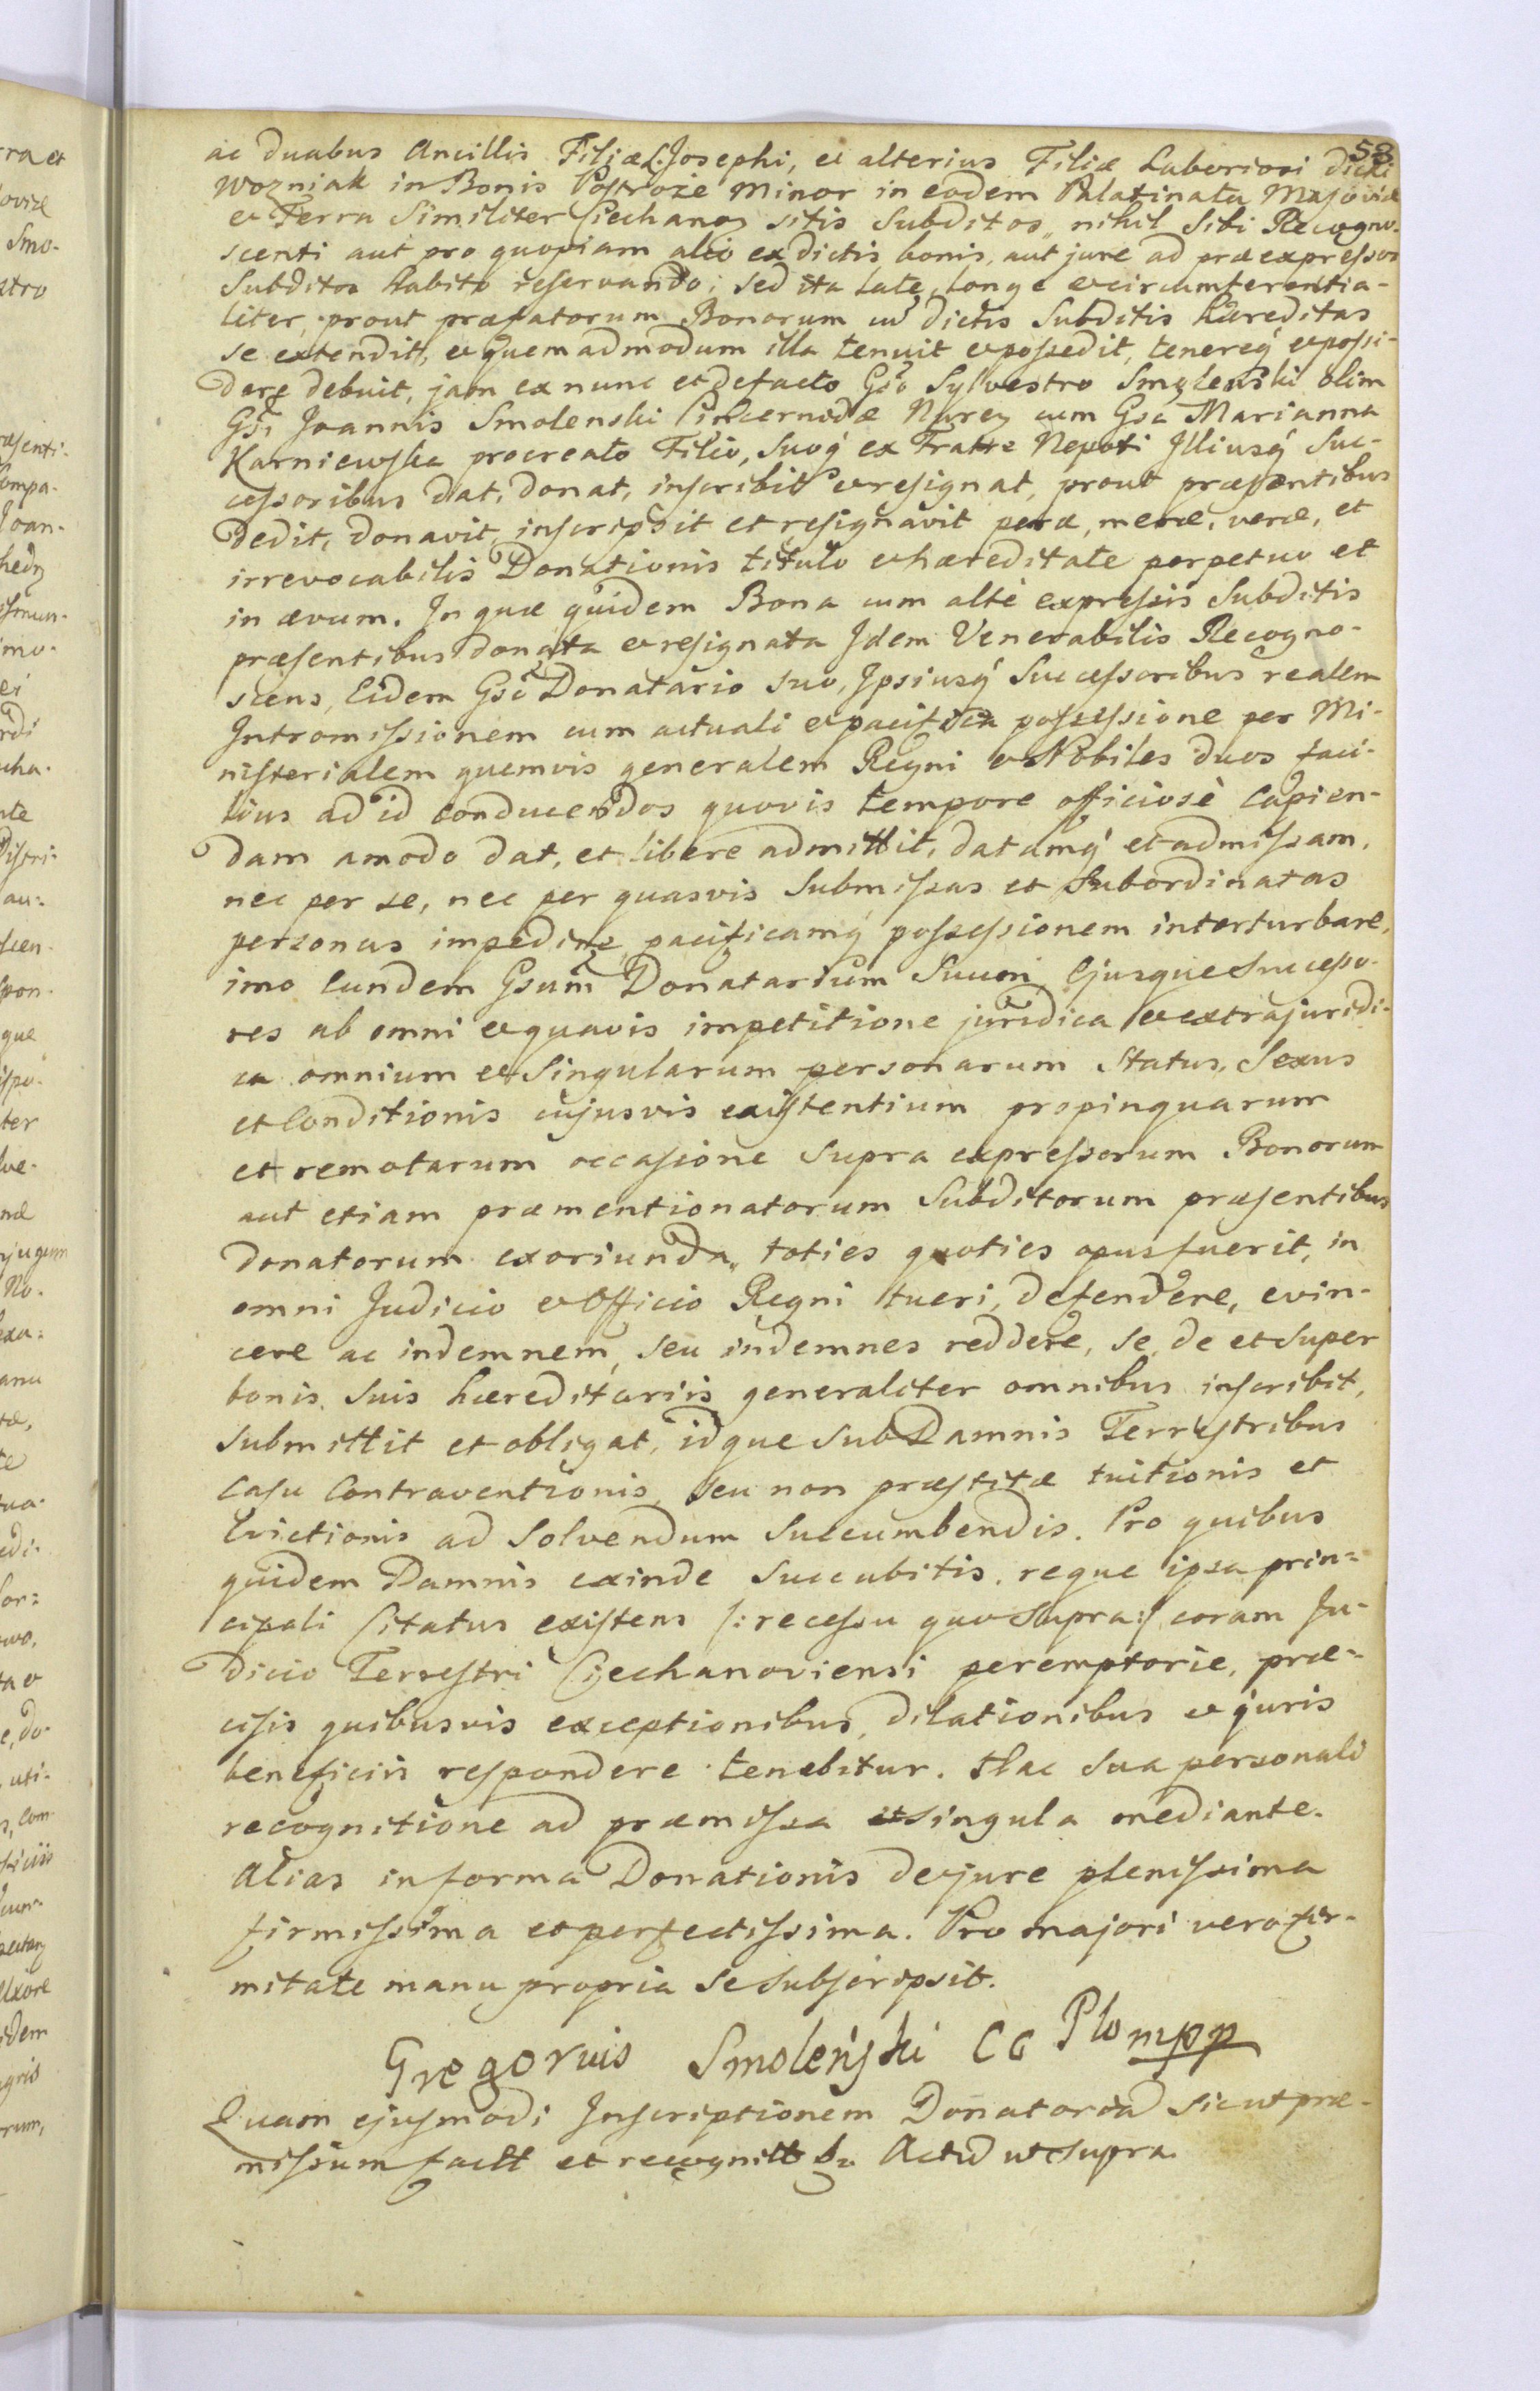 58
ac duabus Ancillis Filiæ L. Josephi, et alterius Filiæ Laboriosi dicti
Wozniak in Bonis Postroże Minor in eodem Palatinatu Masoviæ
et Terra Similiter Ciechanoz sitis Subditos, nihil Sibi Recogno-
scenti aut pro quopiam alio ex dictis bonis, aut jure ad præexpressos
Subditos habito reservando; sed ita late, longe et circumferentia-
liter, prout præfatorum Bonorum cũ dictis Subditis Hæreditas
se extendit, et quemadmodum illa tenuit et possedit, tenereq́ et possi-
dere debuit, jam ex nunc et de facto Gso Sylvestro Smolenski olim
Gsi Joannis Smolenski Pincernidæ Nurez cum Gsa Marianna
Karniewska procreato Filio, Suoq́ ex Fratre Nepoti Illiusq́ Suc-
cessoribus dat, donat, inscribit et resignat, prout præsentibus
dedit, donavit, inscripsit et resignavit puræ, meræ, veræ, et
irrevocabilis Donationis titulo et hæreditate perpetuo et
in ævum. In quæ quidem Bona cum altè expressis Subditis
præsentibus donata et resignata Idem Venerabilis Recogno-
scens, Eidem Gso Donatario suo, Ipsiusq́ Successoribus realem
Intromissionem cum actuali et pacifica possessione per Mi-
nisterialem quemvis generalem Regni et Nobiles duos faci-
lius ad id conducendos quovis tempore officiosè Capien-
dam amodo dat, et libere admittit, datamq́ et admissam,
nec per se, nec per quasvis Submissas et Subordinatas
personas impedire, pacificamq́ possessionem interturbare,
imo Eundem Gsum Donatarium Suum, Ejusque Successo-
res ab omni et quavis impetitione juridica et extrajuridi-
ca omnium et Singularum personarum Status, Sexus
et Conditionis cujusvis existentium propinquarum
et remotarum occasione Supra expressorum Bonorum
aut etiam præmentionatorum Subditorum præsentibus
donatorum exoriunda, toties quoties opus fuerit, in
omni Judicio et Officio Regni tueri, defendere, evin-
cere ac indemnem, seu indemnes reddere, se, de et super
bonis Suis hæreditariis generaliter omnibus inscribit,
Submittit et obligat, idque Sub Damnis Terrestribus
Casu Contraventionis, seu non præstitæ tuitionis et
Evictionis ad Solvendum Succumbendis. Pro quibus
quidem Damnis exinde Succubitis, reque ipsa prin-
cipali Citatus existens /: recessu quo Supra :/ coram Ju-
dicio Terrestri Ciechanoviensi peremptorie, præ-
cisis quibusvis exceptionibus, dilationibus et juris
beneficiis respondere tenebitur. Hac Sua personali
recognitione ad præmissa et singula mediante.
Alias in forma Donationis de jure plenissima
firmissima et perfectissima. Pro majori vero fir-
mitate manu propria Se Subscripsit.
Gregorius Smoleński CC Plo mpp
Quam ejusmodi Inscriptionem Donatoriã sicut præ-
missum facit et recognitt Actũ ut Supra.